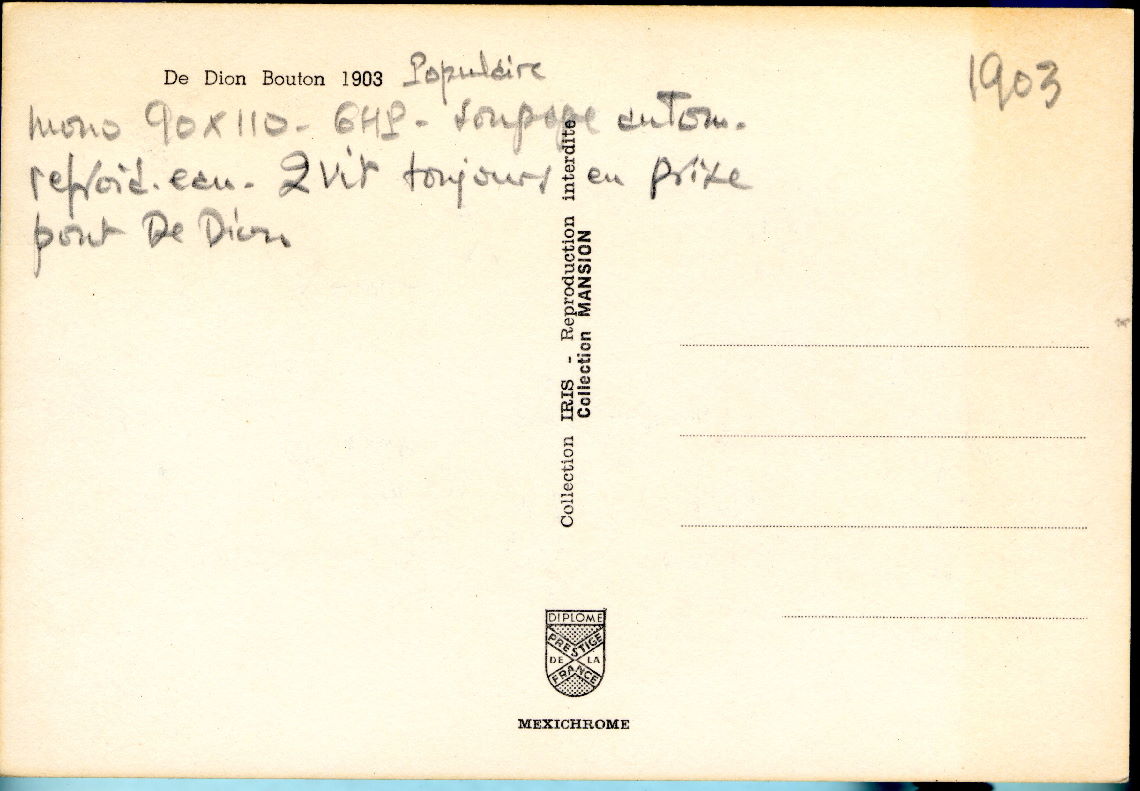 De Dion Bouton 1903 Populaire
1903
mono 90 x 110 - 6HP - soupape autom.
refroid. eau - 2 vit toujours en prise
pont De Dion
Collection IRIS - Reproduction interdite
Collection MANSION
DIPLOME
PRESTIGE
DE LA
FRANCE
MEXICHROME